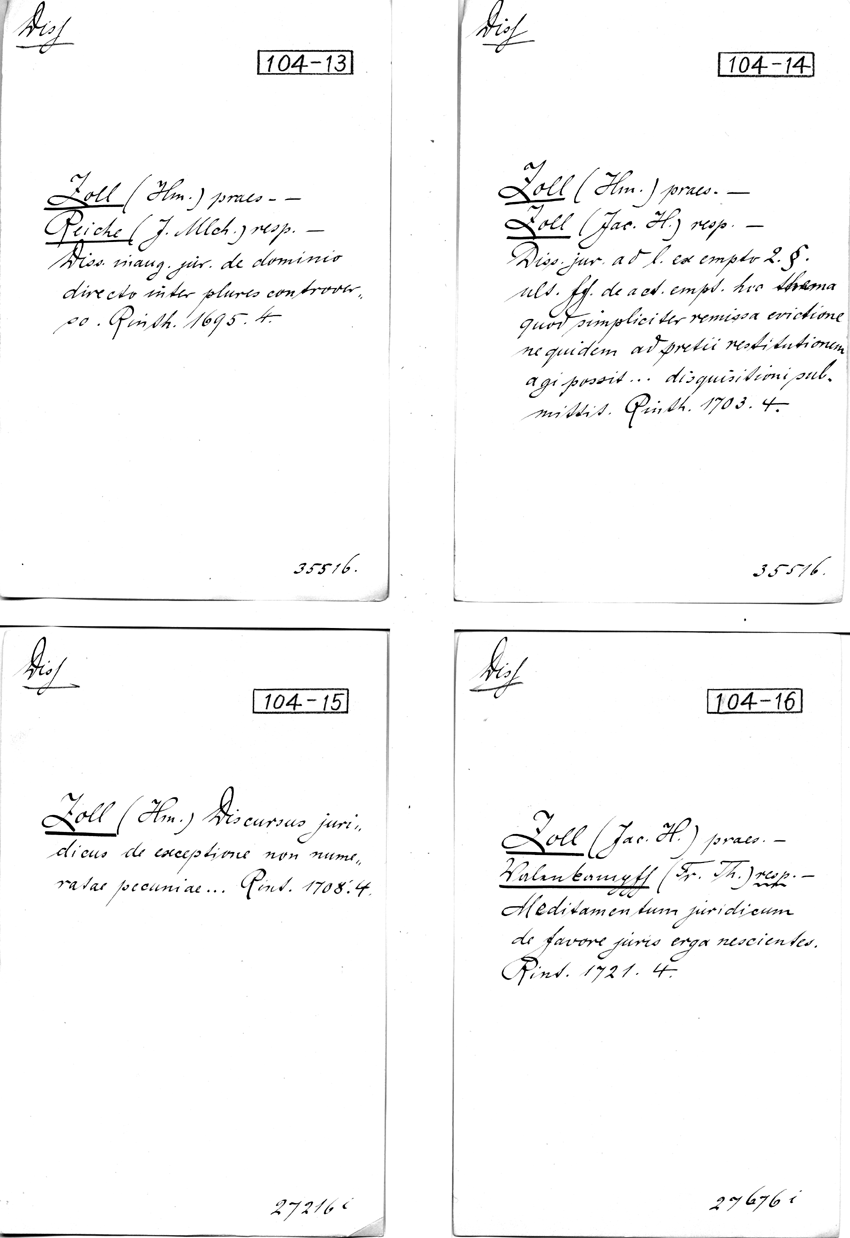 Diss
104-13
Zoll (Hm.) praes. —
Reiche (J. Mlch.) resp. —
Diss. inaug. jur. de dominio
directo inter plures controver„
so. Rinth. 1695. 4.
35516.
Diss
104-14
Zoll (Hm.) praes. —
Zoll (Jac. H.) resp. —
Diss. jur. ad l. ex empto 2. §.
ult. ff. de act. empt. hoc thema
quod simpliciter remissa evictione
ne quidem ad pretii restitutionem
agi possit... disquisitioni sub-
mittit. Rinth. 1703. 4.
35516.
Diss
104-15
Zoll (Hm.) Discursus juri„
dicus de exceptione non nume„
ratae pecuniae... Rint. 1708. 4.
27216 i
Diss
104-16
Zoll (Jac. H.) praes. —
Walenkampff (Fr. Th.) resp. —
Meditamentum juridicum
de favore juris erga nescientes.
Rint. 1721. 4.
27676 i